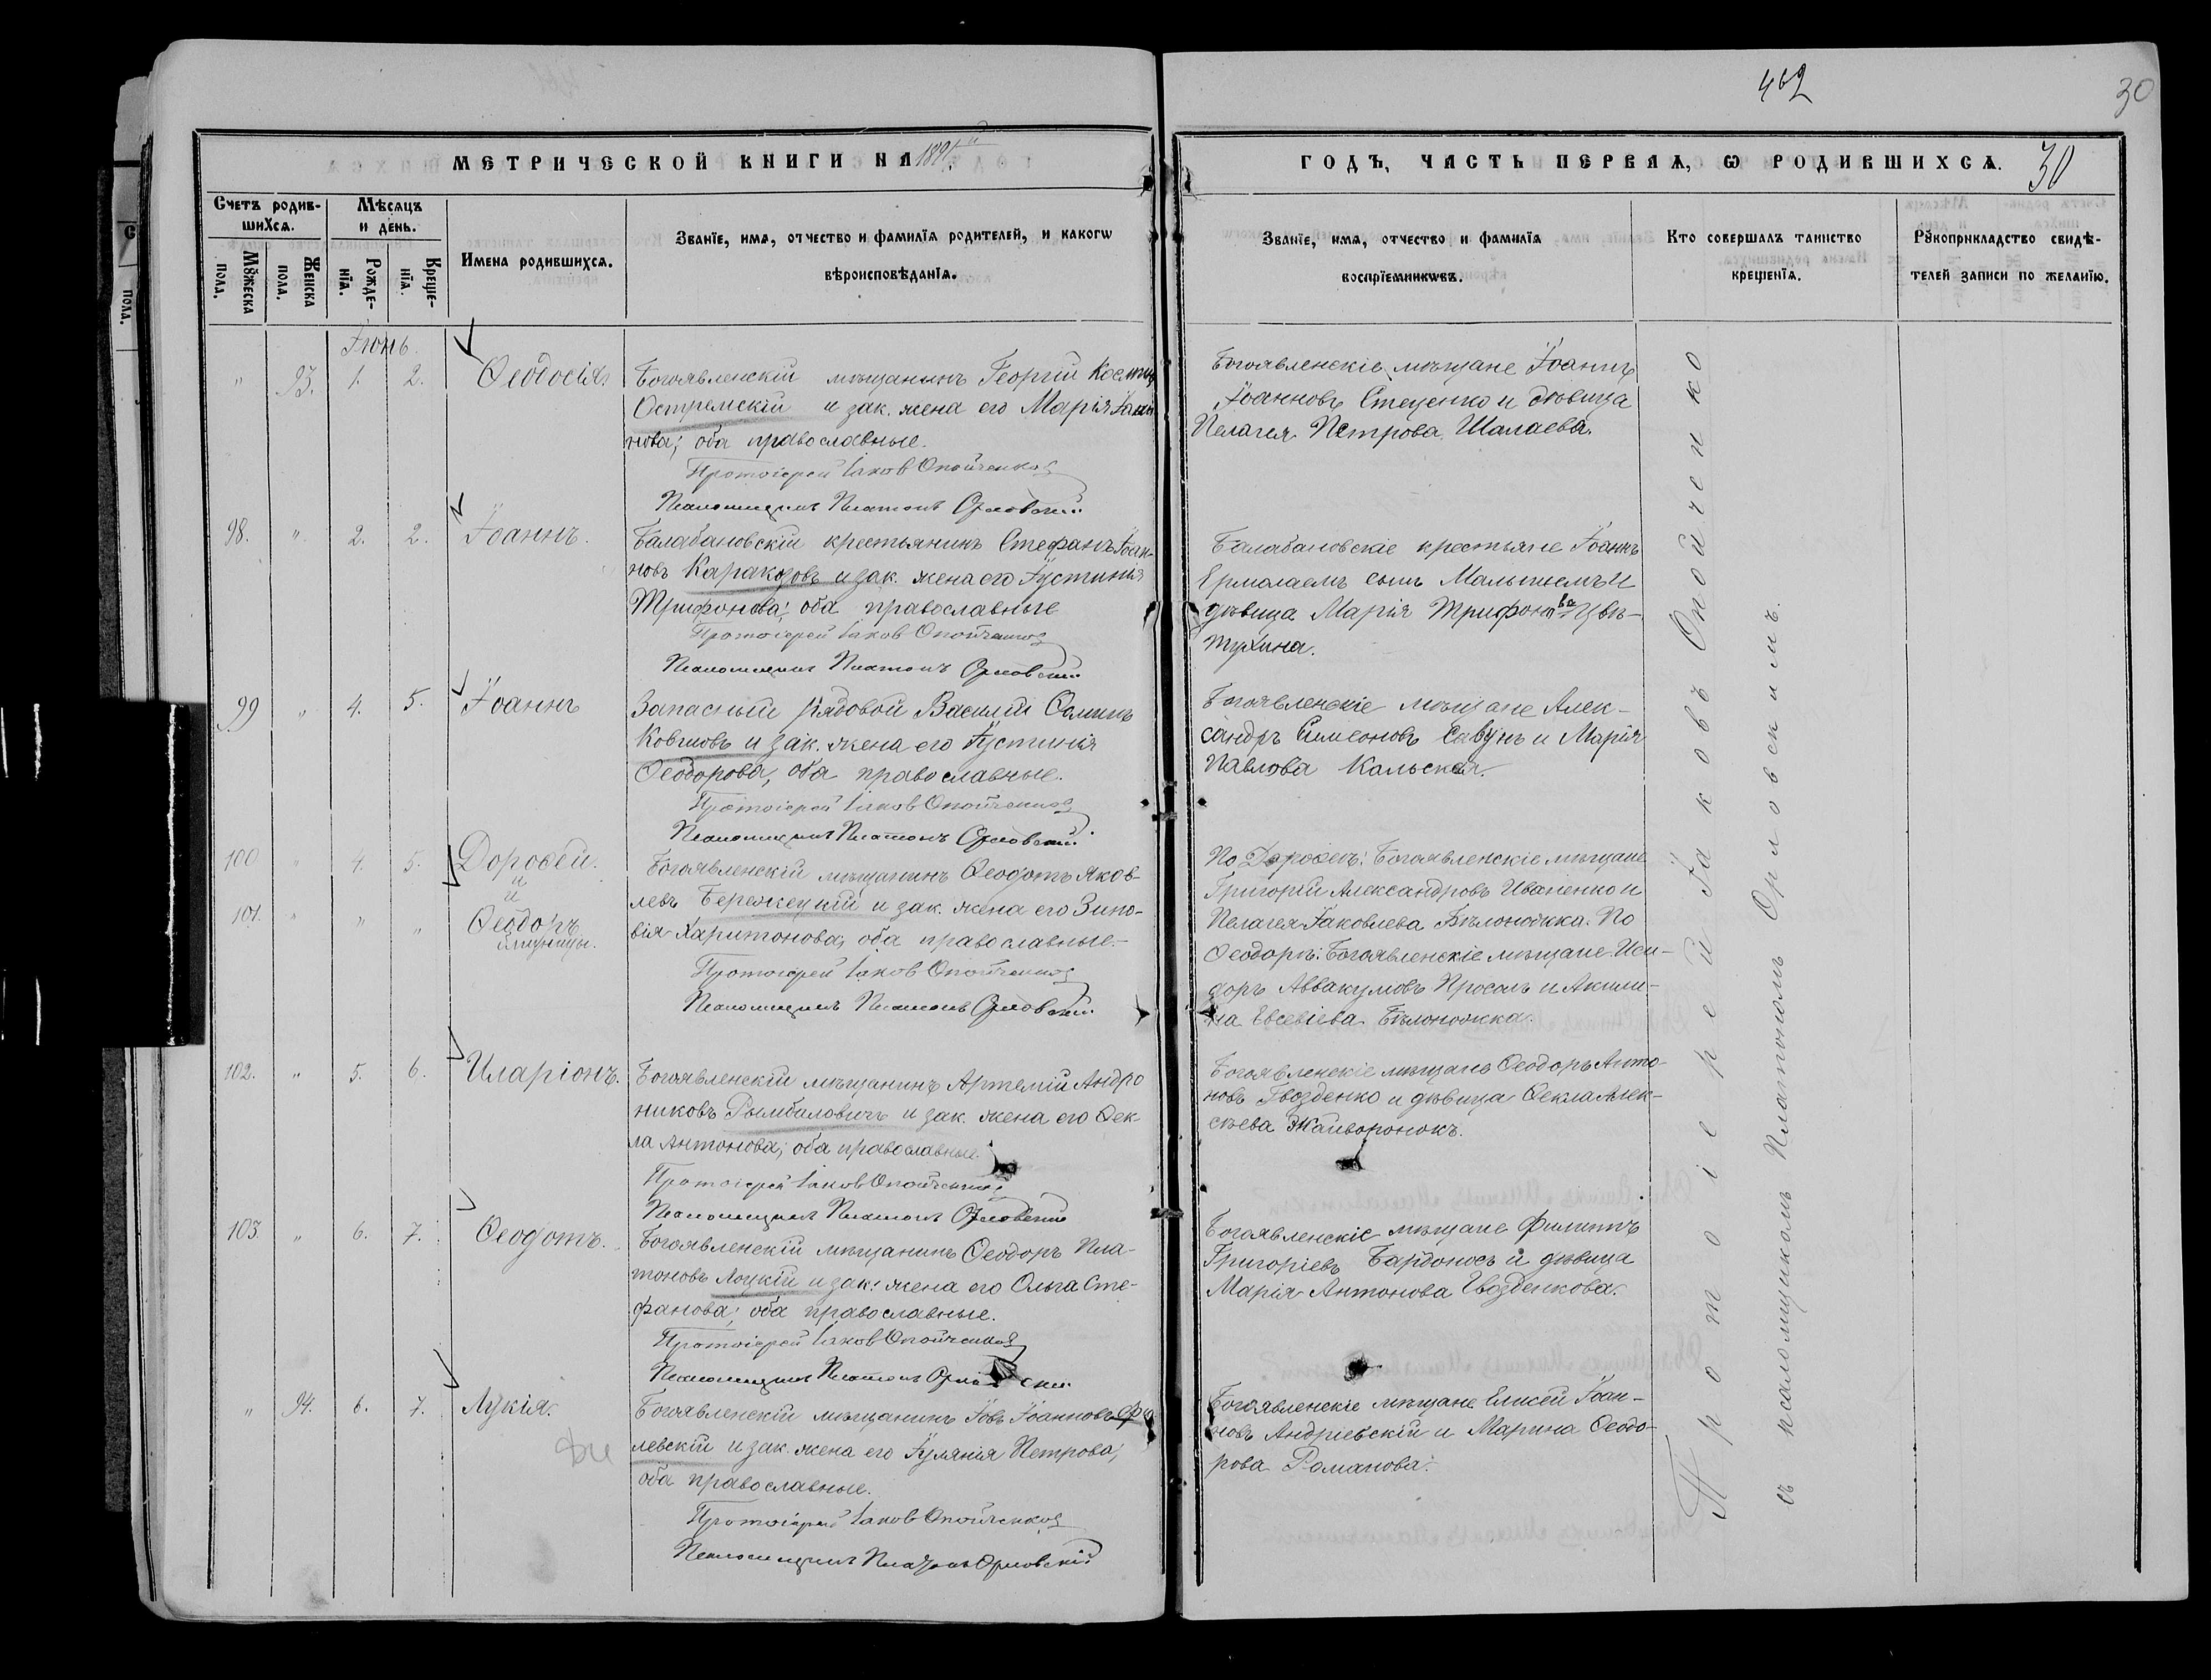 462
30
МЕТРИЧЕСКОЙ КНИГИ НА 1891й
ГОДЪ, ЧАСТЬ ПЕРВАЯ, Ѡ РОДИВШИХСѦ.
30
Счетъ родив-
шихсѧ.
Мѣсяцъ
и день.
Имена родившихсѧ.
Званїе, имѧ, отчество и фамилїѧ родителей, и какогѡ
вѣроисповѣданїѧ.
Мꙋжеска
пола.
Женска
пола.
Рожде-
нїѧ.
Креще-
нїѧ.
Званїе, имѧ, отчество и фамилїѧ
воспрїемникѡвъ.
Кто совершалъ таинство
крещенїѧ.
Рꙋкоприкладство свидѣ-
телей записи по желанїю.
Іюнь
" 93. 1. 2. Ѳеодосія
Богоявленскій мѣщанинъ Георгій
Остремскій и зак. жена его Марія Іоан
нова; оба православные.
Протоіерей Іаков Опойченко
Псаломщикъ Платонъ Орловскій
Богоявленскіе мѣщане Іоаннъ
Іоанновъ Стеценко и дѣвица
Пелагея Петрова Шалаева.
98. " 2. 2. Іоаннъ.
Балабановскій крестьянинъ Стефанъ Іоан-
новъ Каракозовъ и зак. жена его Іустинія
Трифонова; оба православные
Протоіерей Іаков Опойченко
Псаломщикъ Платонъ Орловскій
Балабановскіе крестьяне Іоаннъ
Ермолаемъ сынъ и
дѣвица Марія Трифонова Цвѣ-
тухина.
99 " 4. 5. Іоаннъ
Запасный рядовой Василій
Ковшовъ и зак. жена его Іустинія
Ѳеодорова, оба православные.
Протоіерей Іаков Опойченко
Псаломщикъ Платонъ Орловскій
Богоявленскіе мѣщане Алек-
сандръ Симеоновъ Савунъ и Марія
Павлова Кальская.
100 " 4. 5. Дороѳей.
и
101. " " " Ѳеодоръ
близнецы.
Богоявленскій мѣщанинъ Ѳеодотъ Яков-
левъ Бережецкій и зак. жена его Зино-
вія Харитонова; оба православные.-
Протоіерей Іаков Опойченко
Псаломщикъ Платонъ Орловскій
По Дороѳеѣ: Богоявленскіе мѣщане
Григорій Александровъ Иваненко и
Пелагея Іаковлева Бѣлоножка. По
Ѳеодорѣ: Богоявленскіе мѣщане Иси-
доръ Аввакумовъ Просолъ и Акили-
на Евсевіева Бѣлоножка.
102. " 5. 6. Иларіонъ.
Богоявленскій мѣщанинъ Артемій Андро
никовъ Рымбиловичъ и зак. жена его Ѳек-
ла Антонова; оба православные
Протоіерей Іаков Опойченко
Псаломщикъ Платонъ Орловскій
Богоявленскіе мѣщане Ѳеодоръ Анто-
новъ Гвозденко и дѣвица Ѳекла Алек-
сѣева Жайворонокъ.
103. " 6. 7. Ѳеодотъ.
Богоявленскій мѣщанинъ Ѳеодоръ Пла-
тоновъ Лоцкій и зак. жена его Ольга Сте-
фанова; оба православные.
Протоіерей Іаков Опойченко
Псаломщикъ Платонъ Орловскій
Богоявленскіе мѣщане Филиппъ
Григоріевъ Бардоносъ и дѣвица
Марія Антонова Гвозденкова.
" 94. 6. 7. Лукія.
Богоявленскій мѣщанинъ Іовъ Іоанновъ Фи
левскій и зак. жена его Іуліанія Петрова;
оба православные.
Протоіерей Іаков Опойченко
Псаломщикъ Платонъ Орловскій
Фи
Богоявленскіе мѣщане Елисей Іоан-
новъ Андріевскій и Марина Ѳеодо-
рова Романова.
Протоіерей Іаковъ Опойченко
съ псаломщикомъ Платономъ Орловскимъ.